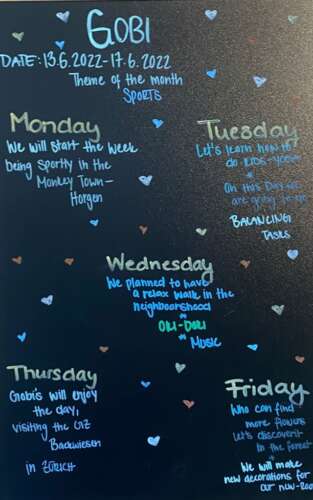 GOBI
DATE: 13.6.2022-17.6.2022
Theme of the month
SPORTS
Monday
We will start the week
being sporty in the
Monkey Town-
Horgen
Tuesday
Let's learn how to
do KIDS-YOGA
On this Day we
are going to do
BALANCING
TASKS
Wednesday
We planned to have
a relax walk in the
neighbourhood
OKI-DOKI
MUSIC
Thursday
Gobi's will enjoy
the day,
visiting the GZ
Bachwiesen
in ZÜRICH
Friday
Who can find
more flowers
Let's discover it
in the forest
We will make
new decorations for
our new-Room